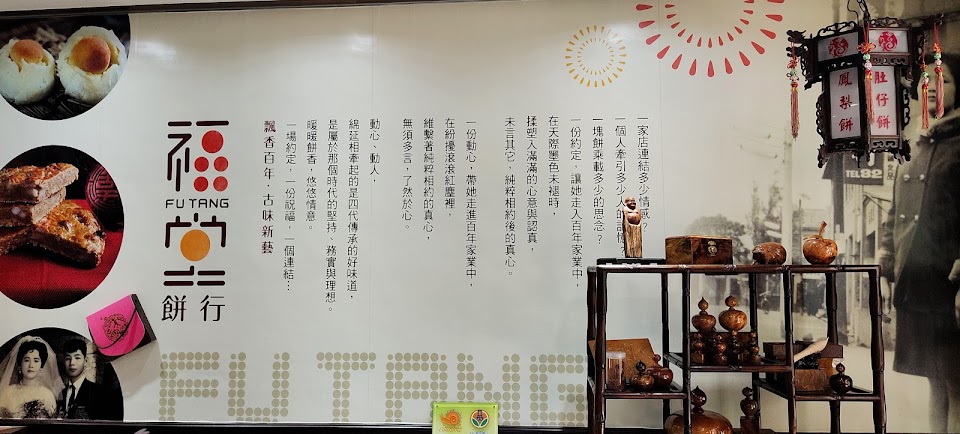 福
FU TANG
堂
餅行
一家店連結多少情感？
一個人牽引多少人的記憶？
一塊餅乘載多少的思念？
一份約定，讓她走入百年家業中，
在天際墨色未褪時，
揉塑入滿滿的心意與認真，
未言其它，純粹相約後的真心。
一份動心，帶她走進百年家業中，
在紛擾滾滾紅塵裡，
維繫著純粹相約的真心，
無須多言，了然於心。
動心、動人，
綿延相牽起的是四代傳承的好味道，
是屬於那個時代的堅持、務實與理想。
暖暖餅香，悠悠情意。
一場約定，一份祝福，一個連結…
飄香百年，古味新藝
FU TANG
肚仔餅
鳳梨餅